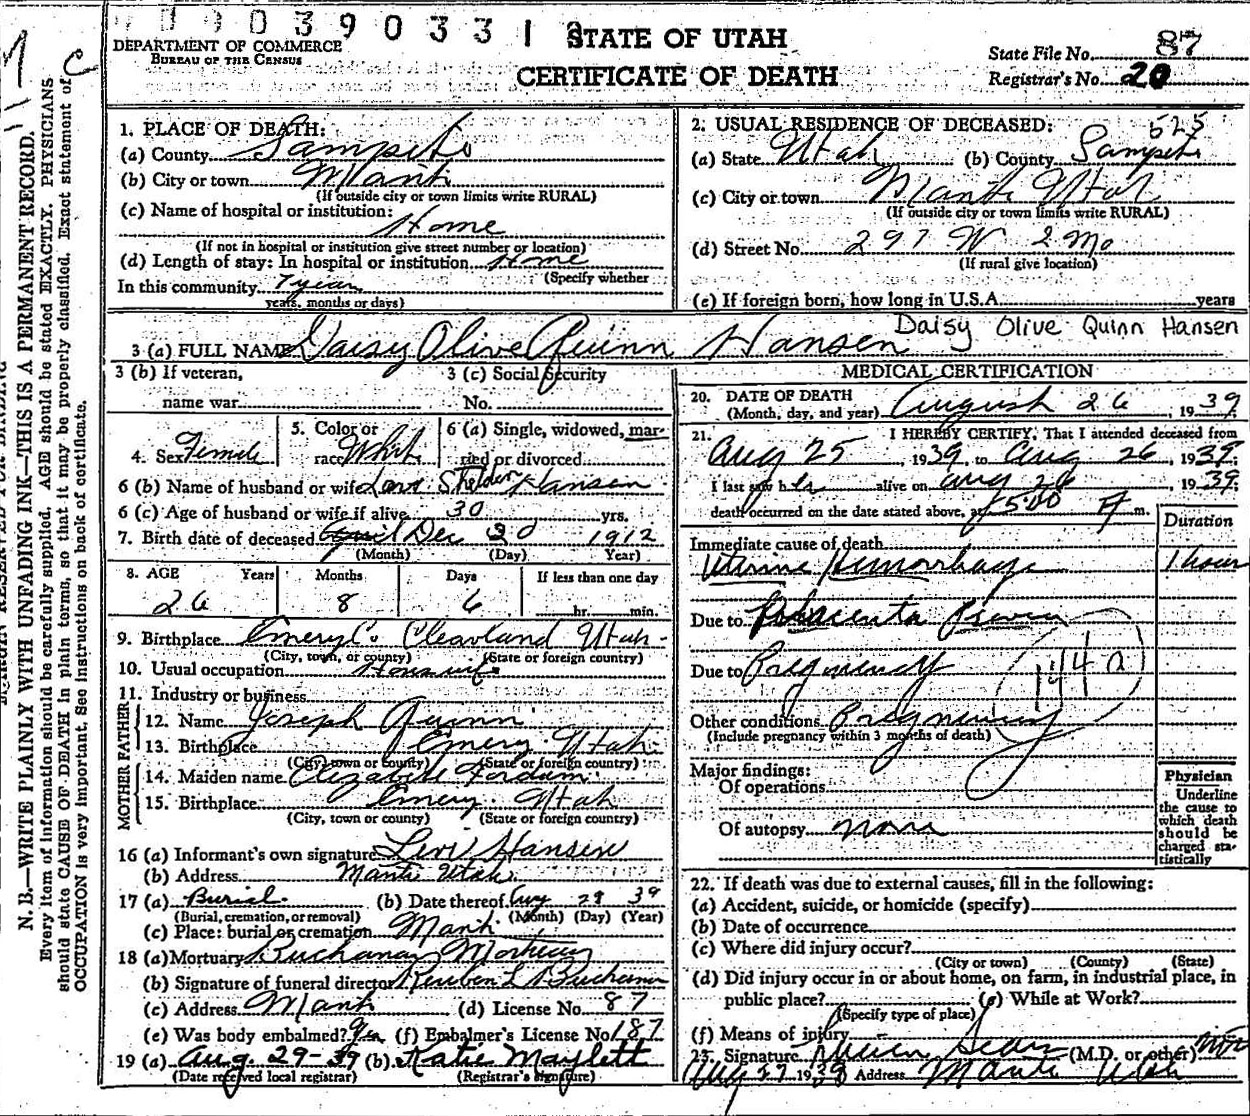 9039033 1
STATE OF UTAH
CERTIFICATE OF DEATH
DEPARTMENT OF COMMERCE
BUREAU OF THE CENSUS
State File No. 87
Registrar's No. 20
N. B.—WRITE PLAINLY WITH UNFADING INK—THIS IS A PERMANENT RECORD.
Every item of information should be carefully supplied. AGE should be stated EXACTLY. PHYSICIANS
should state CAUSE OF DEATH in plain terms, so that it may be properly classified. Exact statement of
OCCUPATION is very important. See instructions on back of certificate.
1. PLACE OF DEATH:
(a) County Sanpete
(b) City or town Manti
(If outside city or town limits write RURAL)
(c) Name of hospital or institution:
Home
(If not in hospital or institution give street number or location)
(d) Length of stay: In hospital or institution Home
(Specify whether
In this community 7 year
years, months or days)
2. USUAL RESIDENCE OF DECEASED: 525
(a) State Utah (b) County Sanpete
(c) City or town Manti Utah
(If outside city or town limits write RURAL)
(d) Street No. 297 W 2 No
(If rural give location)
(e) If foreign born, how long in U.S.A. years
3 (a) FULL NAME Daisy Olive Quinn Hansen Daisy Olive Quinn Hansen
3 (b) If veteran, 3 (c) Social Security
name war No.
4. Sex Female 5. Color or race White 6 (a) Single, widowed, married or divorced
6 (b) Name of husband or wife Levi Hansen
6 (c) Age of husband or wife if alive 30 yrs.
7. Birth date of deceased April Dec 20 1912
(Month) (Day) Year)
8. AGE Years Months Days If less than one day
26 8 6 hr. min.
9. Birthplace Emery Co. Cleavland Utah
(City, town, or county) (State or foreign country)
10. Usual occupation Housewife
11. Industry or business
FATHER
12. Name Joseph Quinn
13. Birthplace Emery Utah
(City, town or county) (State or foreign country)
MOTHER
14. Maiden name Elizabeth Fordam
15. Birthplace Emery Utah
(City, town or county) (State or foreign country)
16 (a) Informant's own signature Levi Hansen
(b) Address Manti Utah
17 (a) Burial (b) Date thereof Aug 29 39
(Burial, cremation, or removal) (Month) (Day) (Year)
(c) Place: burial or cremation Manti
18 (a) Mortuary Buchanan Mortuary
(b) Signature of funeral director Reuben L Buchanan
(c) Address Manti (d) License No. 87
(e) Was body embalmed? Yes (f) Embalmer's License No. 187
19 (a) Aug. 29-39 (b) Katie Maylett
(Date received local registrar) (Registrar's signature)
MEDICAL CERTIFICATION
20. DATE OF DEATH
(Month, day, and year) August 26, 1939
21. I HEREBY CERTIFY, That I attended deceased from
Aug 25, 1939, to Aug 26, 1939;
I last saw her alive on Aug 26, 1939;
death occurred on the date stated above, at 5:00 A m.
Duration
Immediate cause of death
Uterine Hemorrhage 1 hour
Due to Placenta Previa
Due to Pregnency 144 a
Other conditions Pregnency
(Include pregnancy within 3 months of death)
Major findings:
Of operations
Of autopsy none
Physician
Underline
the cause to
which death
should be
charged sta-
tistically
22. If death was due to external causes, fill in the following:
(a) Accident, suicide, or homicide (specify)
(b) Date of occurrence
(c) Where did injury occur?
(City or town) (County) (State)
(d) Did injury occur in or about home, on farm, in industrial place, in
public place? (e) While at Work?
(Specify type of place)
(f) Means of injury
23. Signature Sears (M.D. or other)
Aug 1939 Address Manti Utah